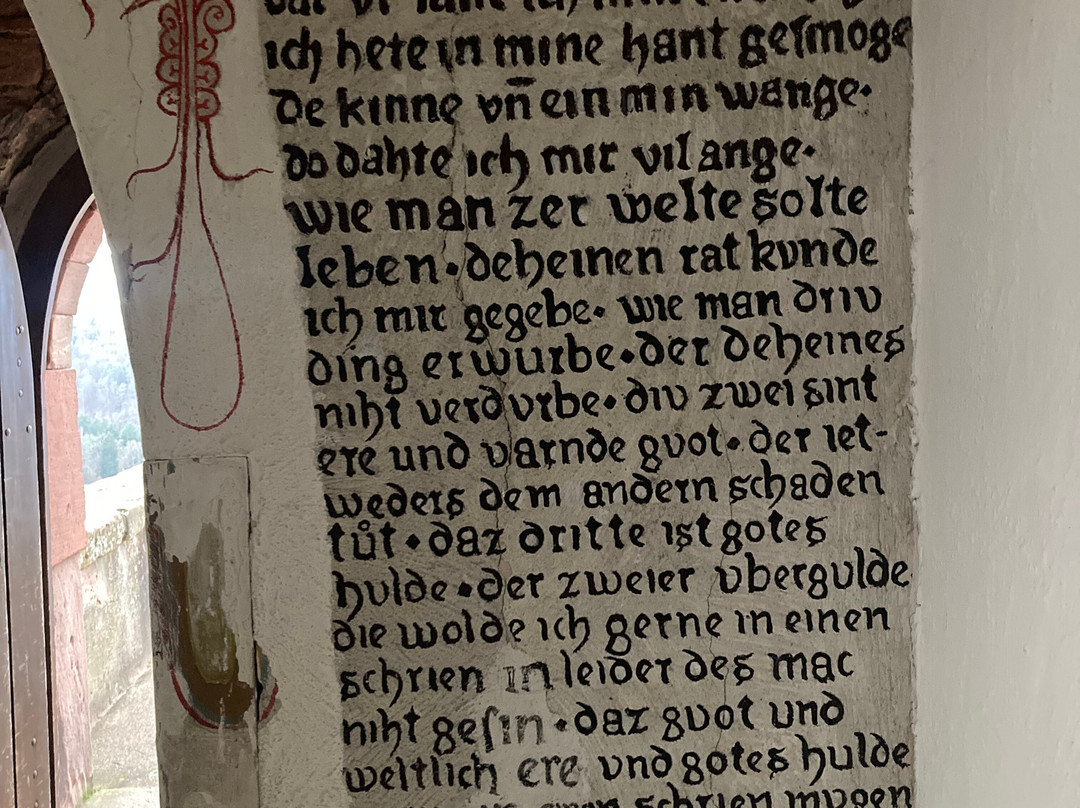 ich hete in mine hant gesmoge
de kinne vn̄ ein min wange·
do dahte ich mir vil ange·
wie man zer welte solte
leben·deheinen rat kvnde
ich mir gegebe· wie man driv
ding erwurbe·der deheines
niht verdvrbe·div zwei sint
ere und varnde gvot·der iet-
weders dem andern schaden
tůt·daz dritte ist gotes
hvlde·der zweier vbergulde
die wolde ich gerne in einen
schrien in leider des mac
niht gesin·daz gvot und
weltlich ere vnd gotes hulde
schrien mvgen